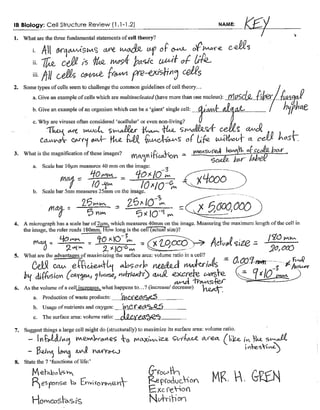 IB Biology: Cell Structure Review [1.1-1.2] NAME: KEY
1. What are the three fundamental statements of cell theory?
i. All organisms are made up of one or more cells
ii. The cell is the most basic unit of life
iii. All cells come from pre-existing cells
2. Some types of cells seem to challenge the common guidelines of cell theory…
a. Give an example of cells which are multinucleated (have more than one nucleus): muscle fiber/fungal hyphae
b. Give an example of an organism which can be a 'giant' single cell: giant algae
c. Why are viruses often considered 'acellular' or even non-living?
They are much smaller than the smallest cells and
cannot carry out the full functions of life without a cell host
3. What is the magnification of these images? magnification = measured length of scale bar / scale bar label
a. Scale bar 10µm measures 40 mm on the image:
mag = 40mm / 10µm = 40×10⁻³m / 10×10⁻⁶m = ×4000
b. Scale bar 5nm measures 25mm on the image.
mag = 25mm / 5nm = 25×10⁻³m / 5×10⁻⁹m = × 5,000,000
4. A micrograph has a scale bar of 2µm, which measures 40mm on the image. Measuring the maximum length of the cell in
the image, the ruler reads 180mm. How long is the cell (actual size)?
mag = 40mm / 2µm = 40×10⁻³m / 2×10⁻⁶m = ×20,000 → Actual size = 180mm / 20,000
5. What are the advantages of maximizing the surface area: volume ratio in a cell?
= 0.009mm
Cell can efficiently absorb needed materials
= 9×10⁻³mm
by diffusion (oxygen, glucose, nutrients) and excrete waste
and transfer heat.
6. As the volume of a cell increases, what happens to…? (increase/ decrease)
a. Production of waste products: increases
b. Usage of nutrients and oxygen: increases
c. The surface area: volume ratio: decreases
7. Suggest things a large cell might do (structurally) to maximize its surface area: volume ratio.
- Infolding membranes to maximize surface area (like in the small intestine)
- Being long and narrow
8. State the 7 'functions of life:'
Metabolism
Response to Environment
Homeostasis
Growth
Reproduction
Excretion
Nutrition
MR. H. GREN